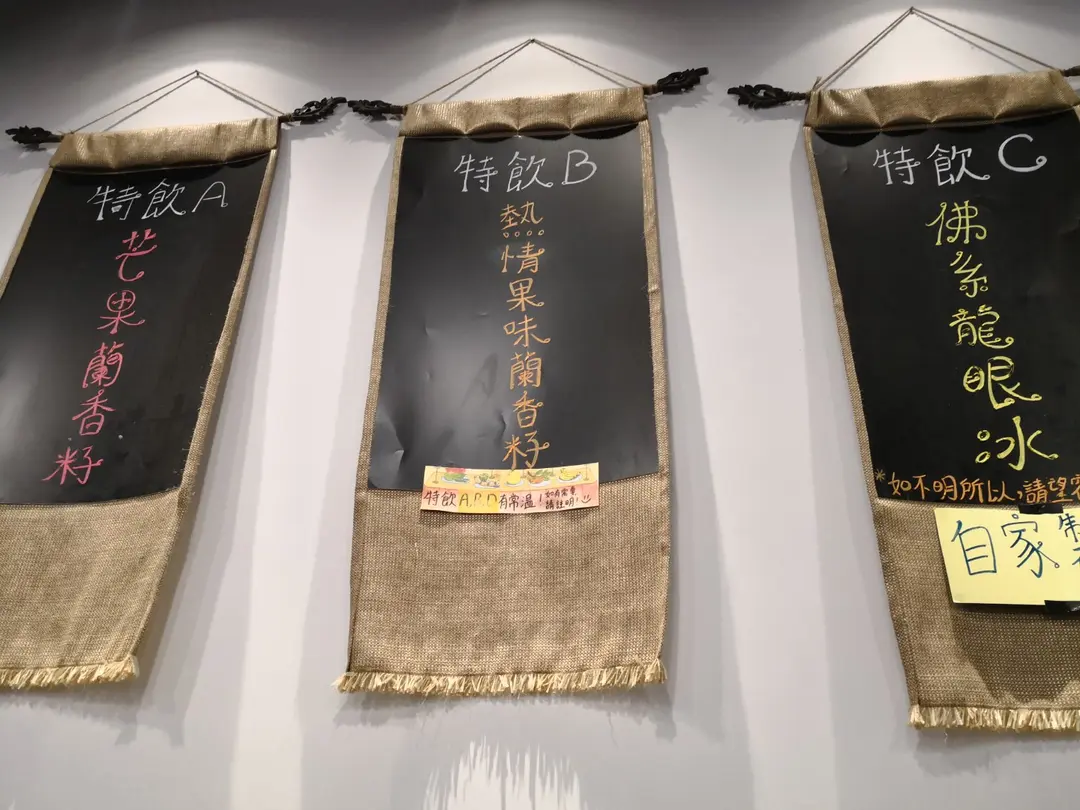 特飲A
芒果蘭香籽
特飲B
熱情果味蘭香籽
特飲A.B.D有常溫!如有需要
請註明!
特飲C
佛系龍眼冰
*如不明所以,請望
自家製